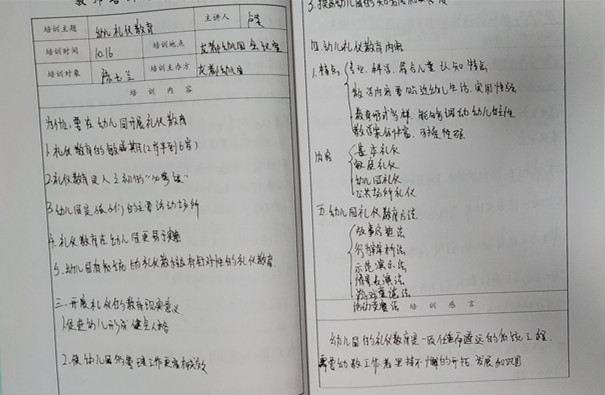 培训主题 幼儿礼仪教育 主讲人
培训时间 10.16 培训地点 幼儿园会议室
培训对象 培训主办方 幼儿园
培训内容
为什么要在幼儿园开展礼仪教育
1.礼仪教育的敏感期(2岁半到6岁)
2.礼仪教育是人之初的“必修课”
3.幼儿园是孩子们的主要活动场所
4.礼仪教育在幼儿园更易于实施
5.幼儿园有针对性的礼仪教育
三.开展礼仪的教育现实意义
1.促进幼儿形成健全人格
2.使幼儿园的管理工作更有成效
四.幼儿礼仪教育内容
1.特点 符合儿童认知特点
教育内容要贴近幼儿生活,实用性强
教育形式多样,能够调动幼儿的主动性
内容 基本礼仪
家庭礼仪
幼儿园礼仪
公共场所礼仪
五.幼儿园礼仪教育方法
故事启迪法
行为辨析法
示范演示法
情景表演法
游戏法
培训感言
幼儿园的礼仪教育是一项任重而道远的系统工程,
需要幼教工作者坚持不懈的开拓、发展和巩固